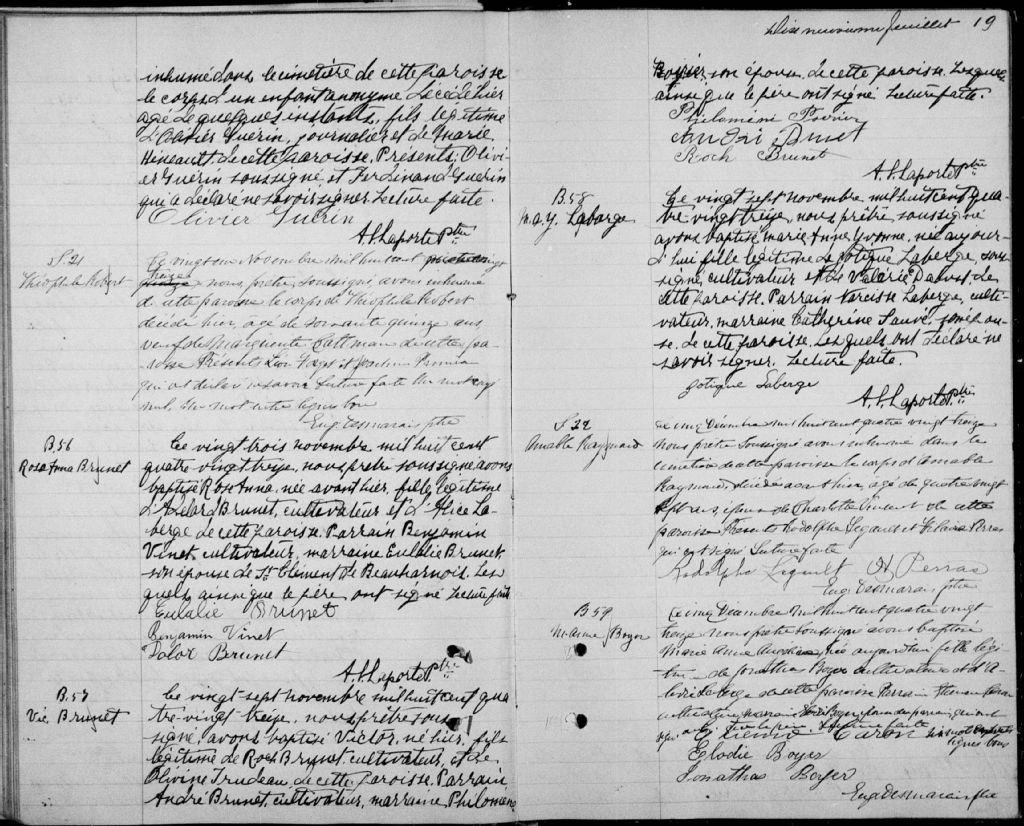 inhumé dans le cimetière de cette paroisse
le corps d'un enfant anonyme décédé hier
agé de quelques instants, fils légitime
d'Olivier Guérin, journalier et de Marie
Héneault de cette paroisse. Présents: Olivi-
er Guérin soussigné et Ferdinand Guérin
qui a déclaré ne savoir signer. Lecture faite.
Olivier Guerin
A. P. Laporte Ptre
S 21
Théophile Robert
Le vingt un Novembre mil huit cent
treize nous prêtre soussigné avons inhumé
de cette paroisse le corps de Théophile Robert
décédé hier, agé de soixante quinze ans,
veuf de Marguerite de cette pa-
roisse Présents Léon
qui ont déclaré ne savoir Lecture faite Un mot
nul,
Eug. Desmarais ptre
B. 56
Rose Anna Brunet
Le vingt trois novembre mil huit cent
quatre vingt treize, nous prêtre soussigné avons
baptisé Rose Anna, née avant hier, fille légitime
d'Adélard Brunet, cultivateur et d'Alice La-
berge de cette paroisse. Parrain Benjamin
Vinet cultivateur, marraine Eulalie Brunet
son épouse de St Clément de Beauharnois. Les
quels ainsi que le père ont signé Lecture faite
Eulalie Brunet
Benjamin Vinet
Dalor Brunet
A. P. Laporte Ptre
B. 57
Vic. Brunet
Le vingt-sept novembre mil huit cent qua
tre-vingt treize, nous prêtre sous
signé, avons baptisé Victor, né hier, fils
légitime de Roch Brunet, cultivateur, et de
Olivine Trudeau, de cette paroisse. Parrain
André Brunet, cultivateur, marraine Philomène
Dix neuvieme feuillet 19
son épouse, de cette paroisse. Lesquels
ainsi que le père ont signé Lecture faite.
Philomène Poirier
André Brunet
Roch Brunet
A. P. Laporte Ptre
B. 58
M. A. Y. Laberge
Le vingt sept novembre mil huit cent qua
tre-vingt treize, nous prêtre, soussigné
avons baptisé Marie Anne Yvonne, née aujour-
d'hui fille légitime de Gotique Laberge, sous
signé, cultivateur et de Valérie Daoust de
cette paroisse. Parrain Narcisse Laberge, culti-
vateur, marraine Catherine Sauvé, son épou-
se, de cette paroisse. Lesquels ont déclaré ne
savoir signer. Lecture faite.
Gotique Laberge
A. P. Laporte Ptre
S 22
Amable Raymond
Le cinq Décembre mil huit cent quatre vingt treize
nous prêtre soussigné avons inhumé dans le
cimetière de cette paroisse le corps d'Amable
Raymond, décédé avant hier, agé de quatre vingt
sept ans, époux de Charlotte de cette
paroisse Présents Rodolphe et Perras
qui ont signé Lecture faite
Rodolphe Perras
Eug. Desmarais ptre
B. 59
M. Anne Boyer
Le cinq Décembre mil huit cent quatre vingt
treize nous prêtre soussigné avons baptisé
Marie Anne née aujourd'hui fille légi-
time de Jonathas Boyer cultivateur et
Laberge de cette paroisse Parrain
cultivateur, marraine Boyer
Lecture faite
Caron
Elodie Boyer
Jonathas Boyer
Eug. Desmarais ptre